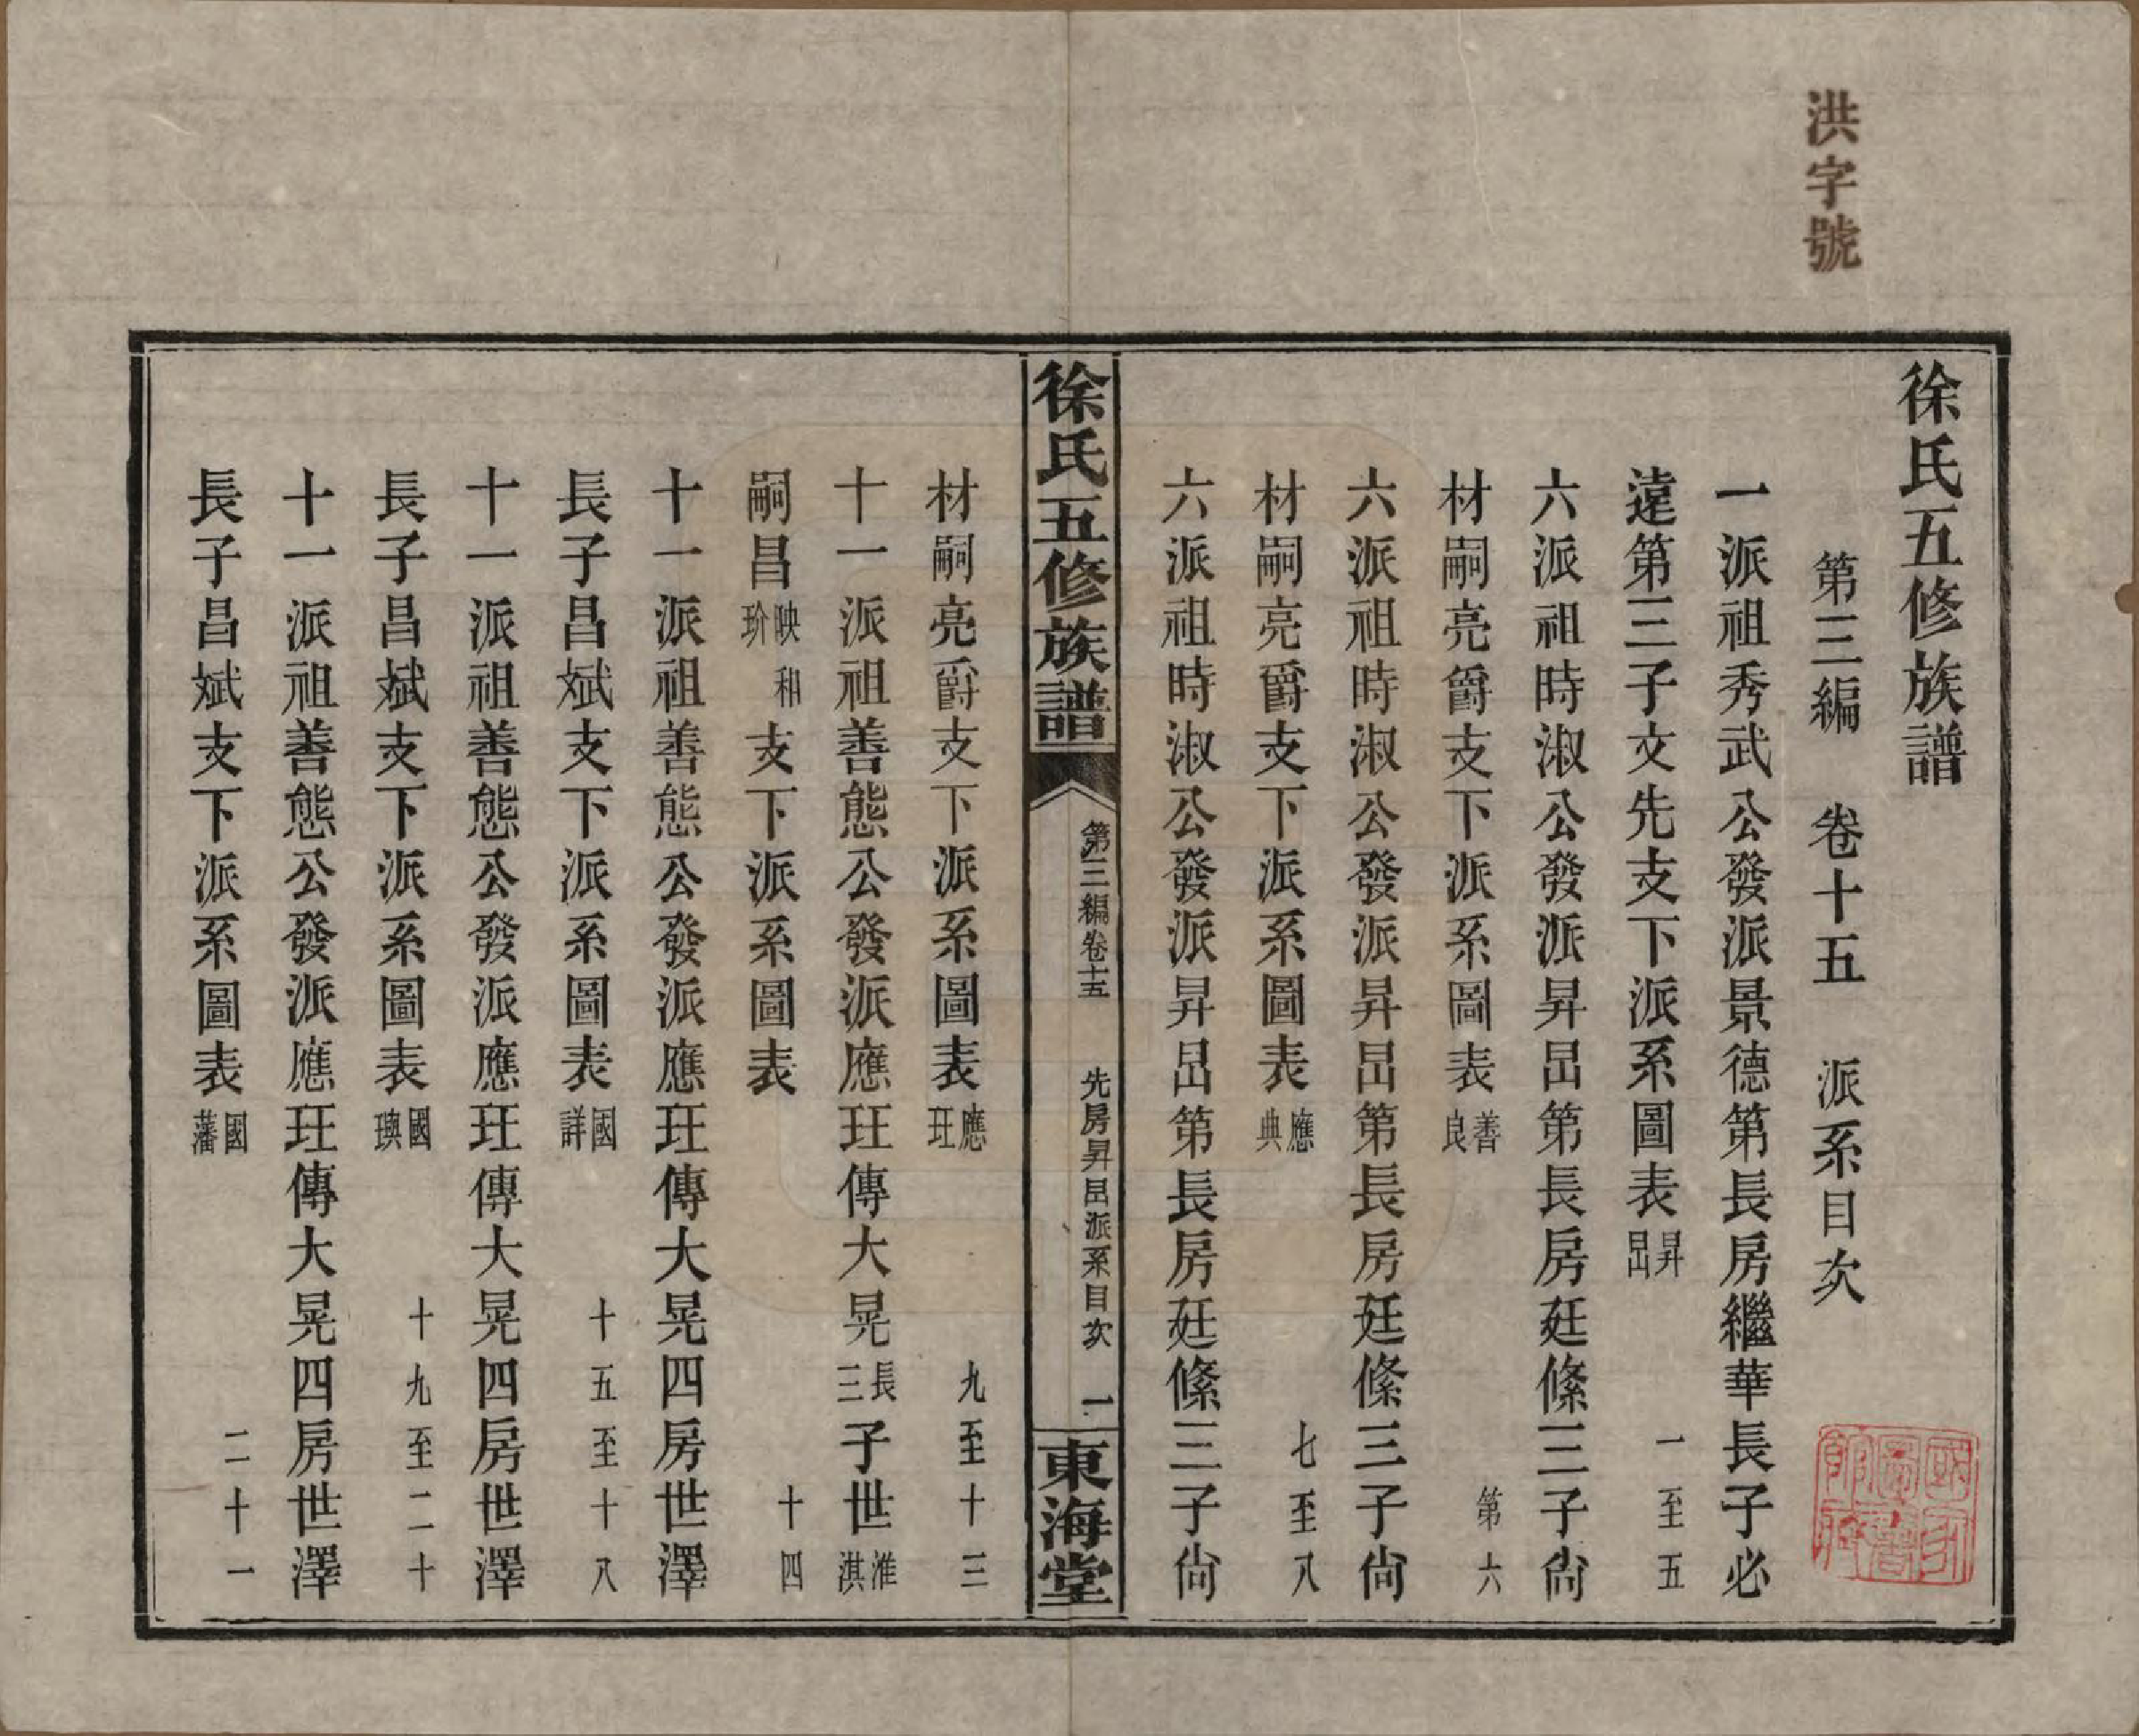 洪字號
徐氏五修族譜
第三編　卷十五　派系目次
一派祖秀武公發派景德第長房繼華長子必
遠第三子文先支下派系圖表昇昌　一至五
六派祖時淑公發派昇昌第長房廷絛三子尙
材嗣亮爵支下派系圖表善良　第六
六派祖時淑公發派昇昌第長房廷絛三子尙
材嗣亮爵支下派系圖表應典　七至八
六派祖時淑公發派昇昌第長房廷絛三子尙
徐氏五修族譜　第三編卷十五　先房昇昌派系目次　一　東海堂
材嗣亮爵支下派系圖表應玨　九至十三
十一派祖善態公發派應玨傳大晃長三子世淮淇
嗣昌映和玠支下派系圖表　十四
十一派祖善態公發派應玨傳大晃四房世澤
長子昌斌支下派系圖表國詳　十五至十八
十一派祖善態公發派應玨傳大晃四房世澤
長子昌斌支下派系圖表國璵　十九至二十
十一派祖善態公發派應玨傳大晃四房世澤
長子昌斌支下派系圖表國藩　二十一